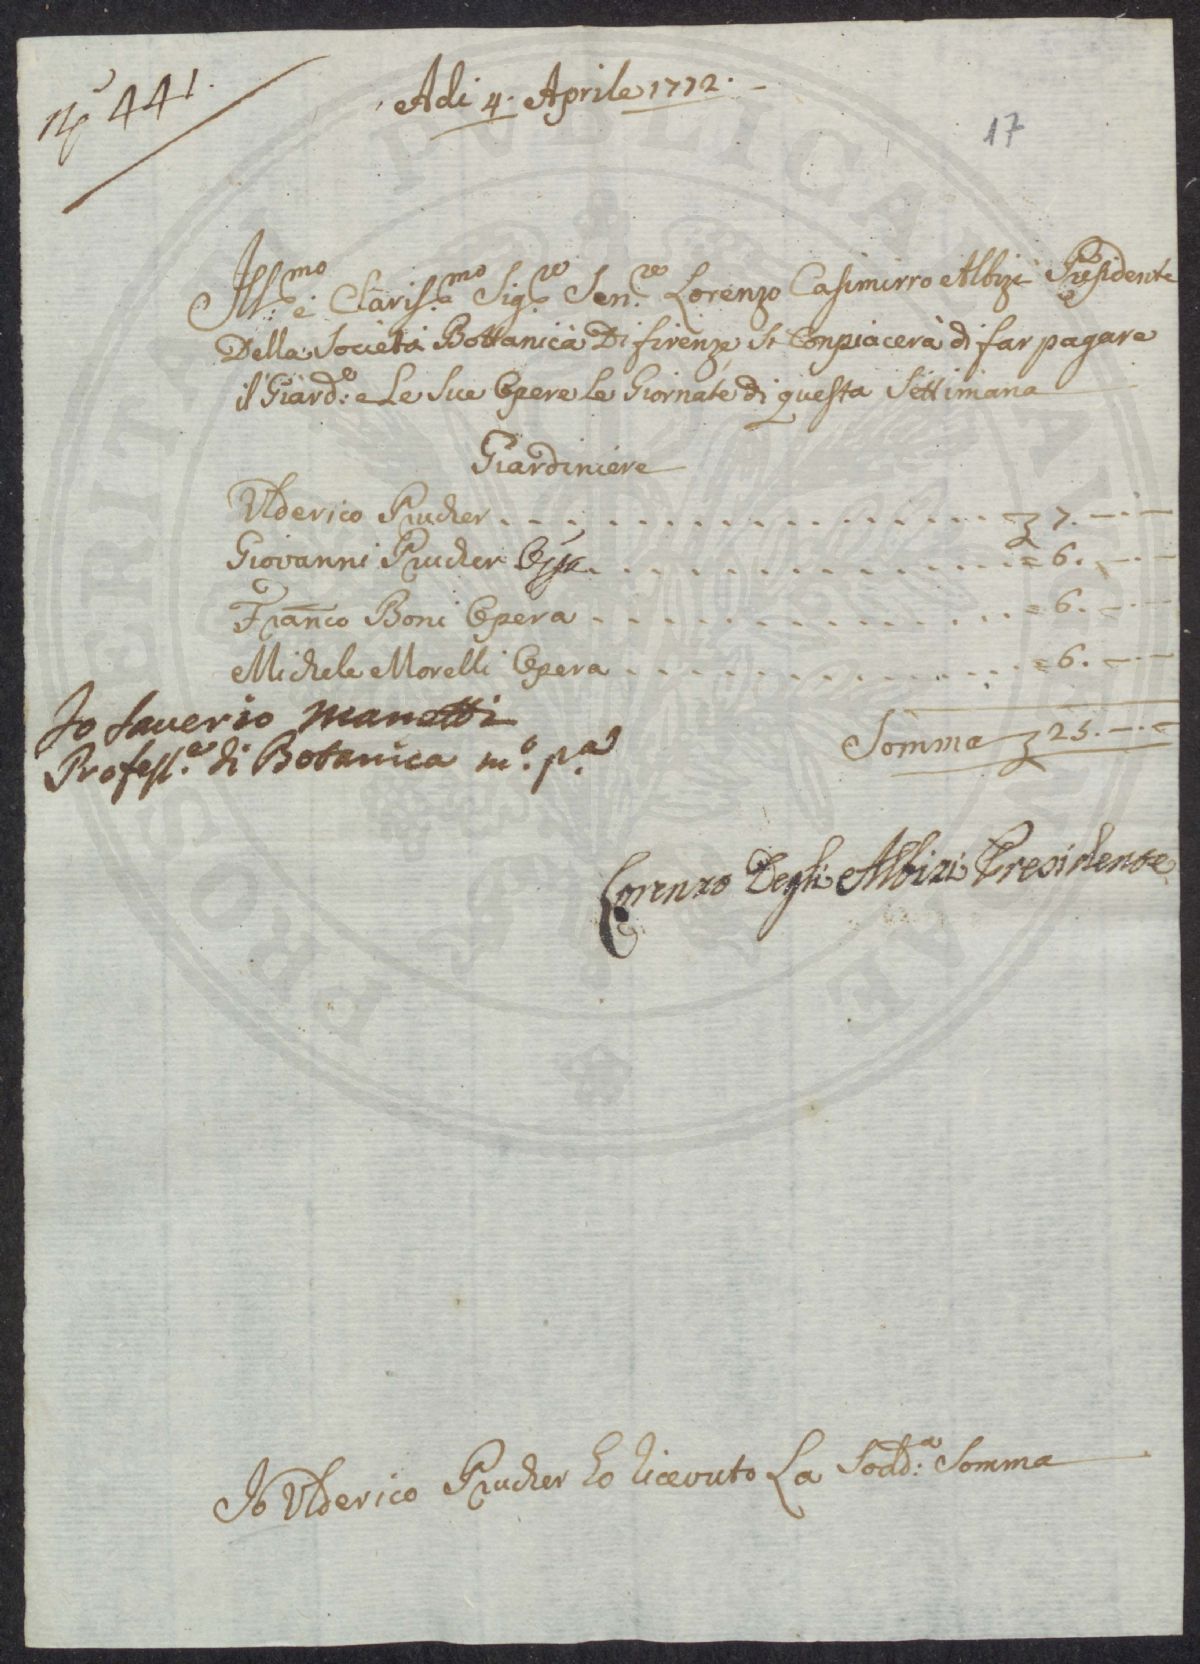 N.º 441.
Adi 4. Aprile 1772.
17
Ill:mo e Claris:mo Sig:re Sen:re Lorenzo Casimirro Albizi Presidente
Della Società Bottanica Di firenze, Si Conpiacerà di far pagare
il Giard:e e Le Sue Opere Le Giornate di questa Settimana
Giardiniere
Ulderico Prucher 7. — . —
Giovanni Prucher = 6. — . —
Fran͞co Boni Opera = 6. — . —
Michele Morelli Opera = 6. — . —
Io Saverio Manetti
Profess:e di Botanica m:o p:a
Somma 25. — . —
Lorenzo Degli Albizi Presidente
Io Ulderico Prucher ho ricevuto La Sodd:a Somma